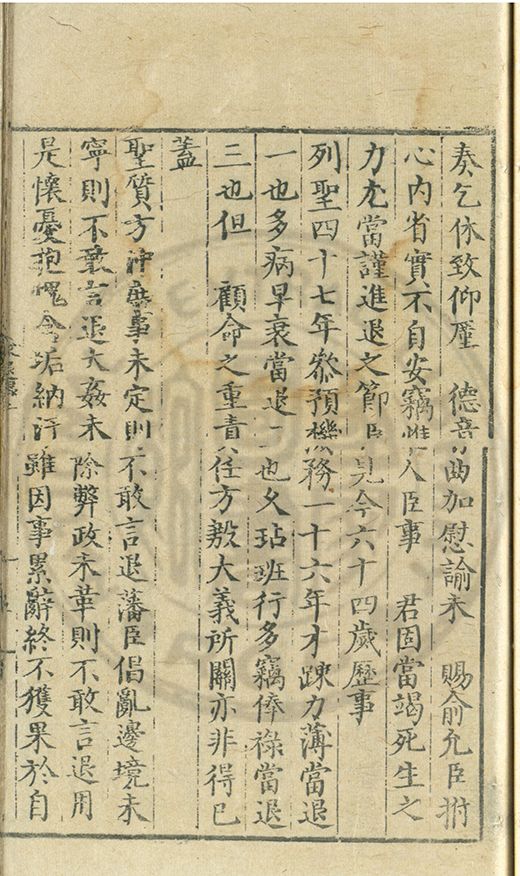 奏乞休致仰塵　德音曲加慰諭未　賜俞允臣拊
心内省實不自安竊惟人臣事　君固當竭死生之
力尤當謹進退之節臣見今六十四歲歷事
列聖四十七年叅預機務一十六年才踈力薄當退
一也多病早衰當退二也久玷班行多竊俸禄當退
三也但　顧命之重責任方殷大義所關亦非得已
蓋
聖質方冲庶事未定則不敢言退藩臣倡亂邊境未
寧則不敢言退大姦未除弊政未革則不敢言退用
是懷憂抱愧含垢納汙雖因事累辭終不獲果於自